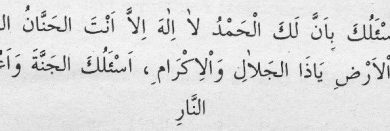 بِاَنَّ لَكَ الْحَمْدُ لاٰ اِلٰهَ اِلاَّ اَنْتَ الحَنَّانُ
يَاذَا الجَلاٰلِ وَاْلاِكْرَامِ، اَسْئَلُكَ الجَنَّةَ
النَّارِ